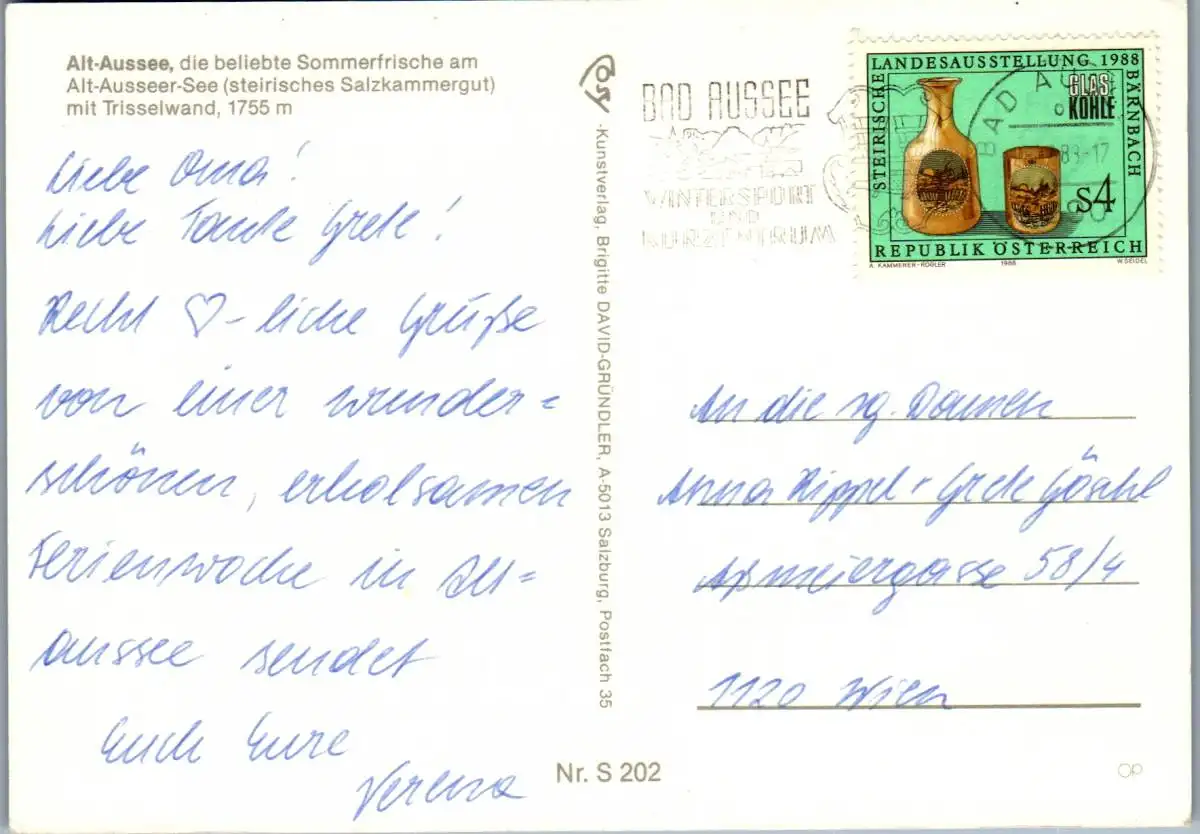 Alt-Aussee, die beliebte Sommerfrische am
Alt-Ausseer-See (steirisches Salzkammergut)
mit Trisselwand, 1755 m
Liebe Oma!
Liebe Tante Grete!
Recht ♡-liche Grüße
von einer wunder=
schönen, erholsamen
Ferienwoche in Alt=
aussee sendet
Euch Eure
Verena
Cosy
-Kunstverlag, Brigitte DAVID-GRÜNDLER, A-5013 Salzburg, Postfach 35
Nr. S 202
BAD AUSSEE
WINTERSPORT
UND
KURZENTRUM
BAD AU
88-17
STEIRISCHE LANDESAUSSTELLUNG 1988 BÄRNBACH
GLAS
KOHLE
S4
REPUBLIK ÖSTERREICH
A. KAMMERER-RÖGLER 1988 W. SEIDEL
An die sg. Damen
Anna Rippel + Grete Göschl
Aßmeiergasse 58/4
1120 Wien
OP